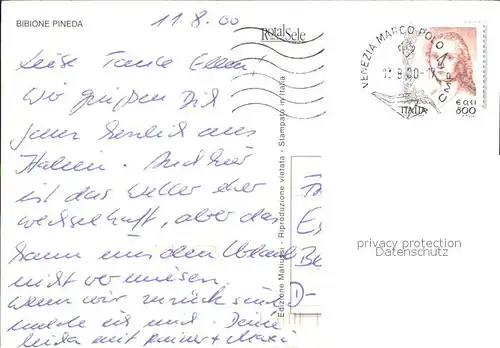 BIBIONE PINEDA
11.8.00
Rotal Sele
VENEZIA MARCO POLO
CMP
ITALIA
€ 0,41
800
Tante Ellen!
Wir grüßen Dich
ganz herzlich aus
Italien. Auch hier
ist das Wetter eher
wechselhaft, aber das
kann uns den Urlaub
nicht vermiesen.
Wenn wir zurück sind
melde ich mich. Deine
mit Rainer + Maxi
Edizione Riproduzione vietata - Stampato in Italia
I
D-
privacy protection
Datenschutz